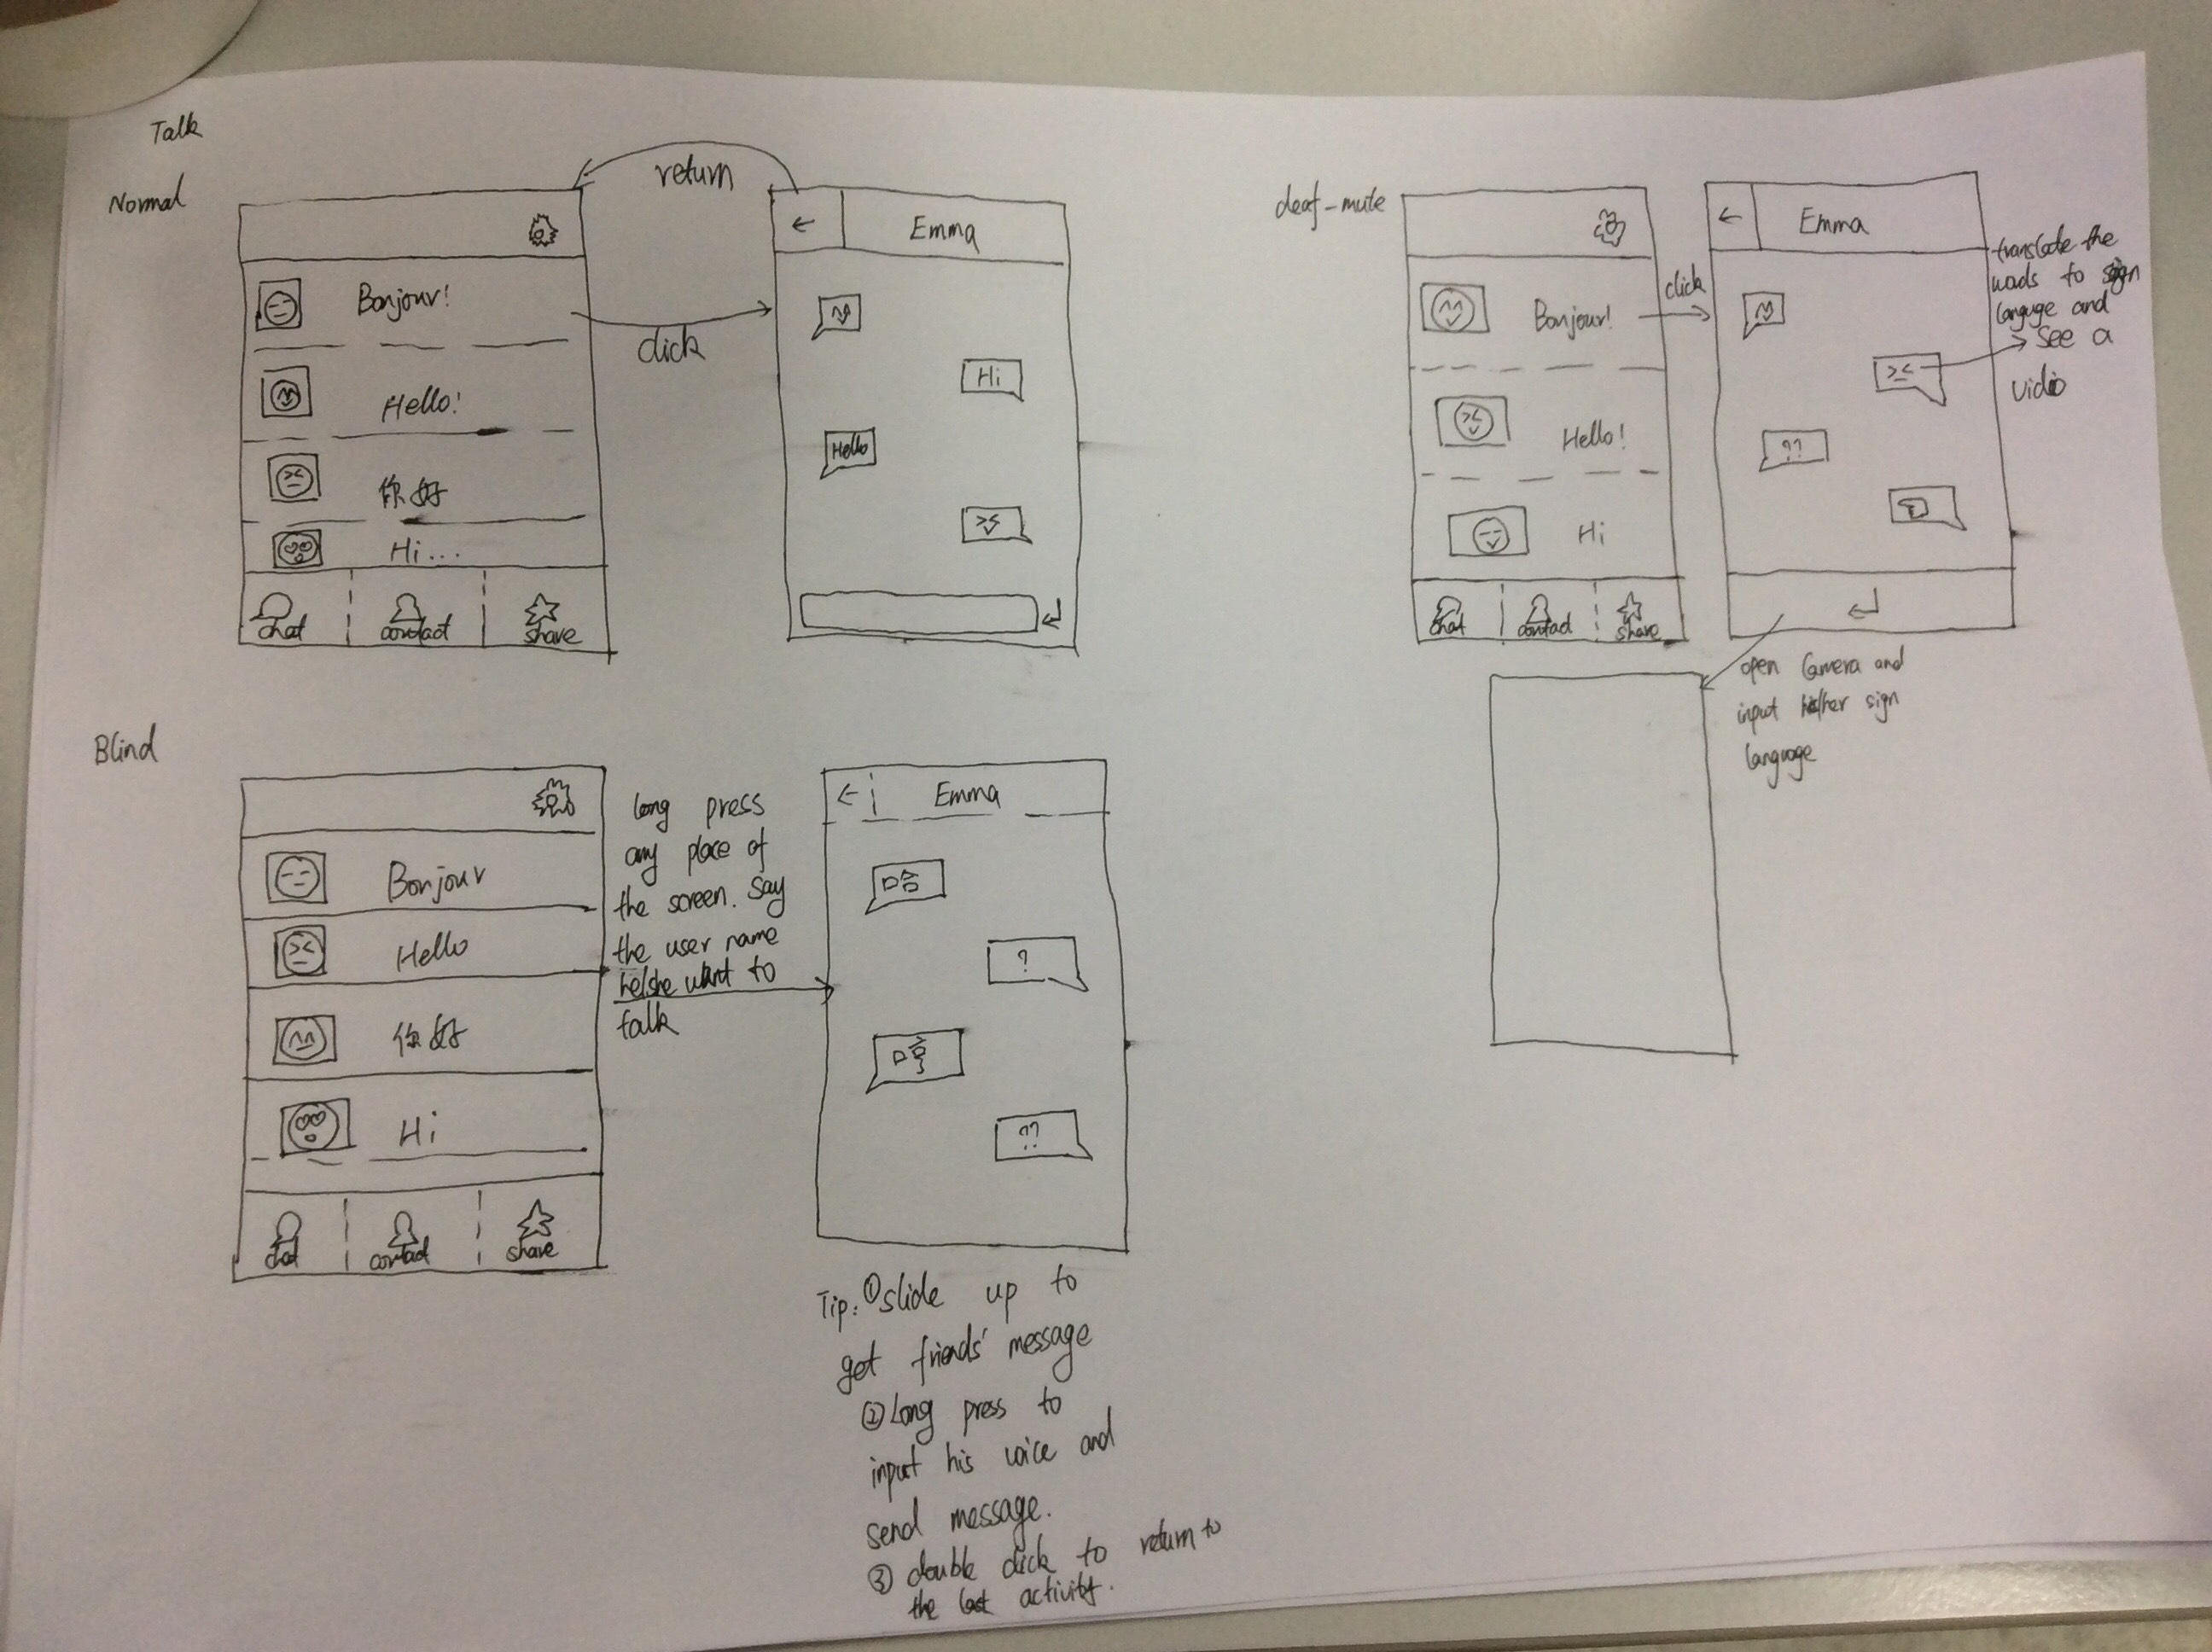 Talk
Normal
return
Bonjour!
Hello!
你好
Hi...
chat
contact
share
click
Emma
Hi
Hello
deaf-mute
Bonjour!
Hello!
Hi
chat
contact
share
click
Emma
??
translate the
words to sign
languge and
see a
video
open Camera and
input his/her sign
language
Blind
Bonjour
Hello
你好
Hi
chat
contact
share
long press
any place of
the screen. Say
the user name
he/she want to
talk
Emma
哈
?
哼
??
Tip: ①slide up to
get friends' message
②Long press to
input his voice and
send message.
③ double click to return to
the last activity.